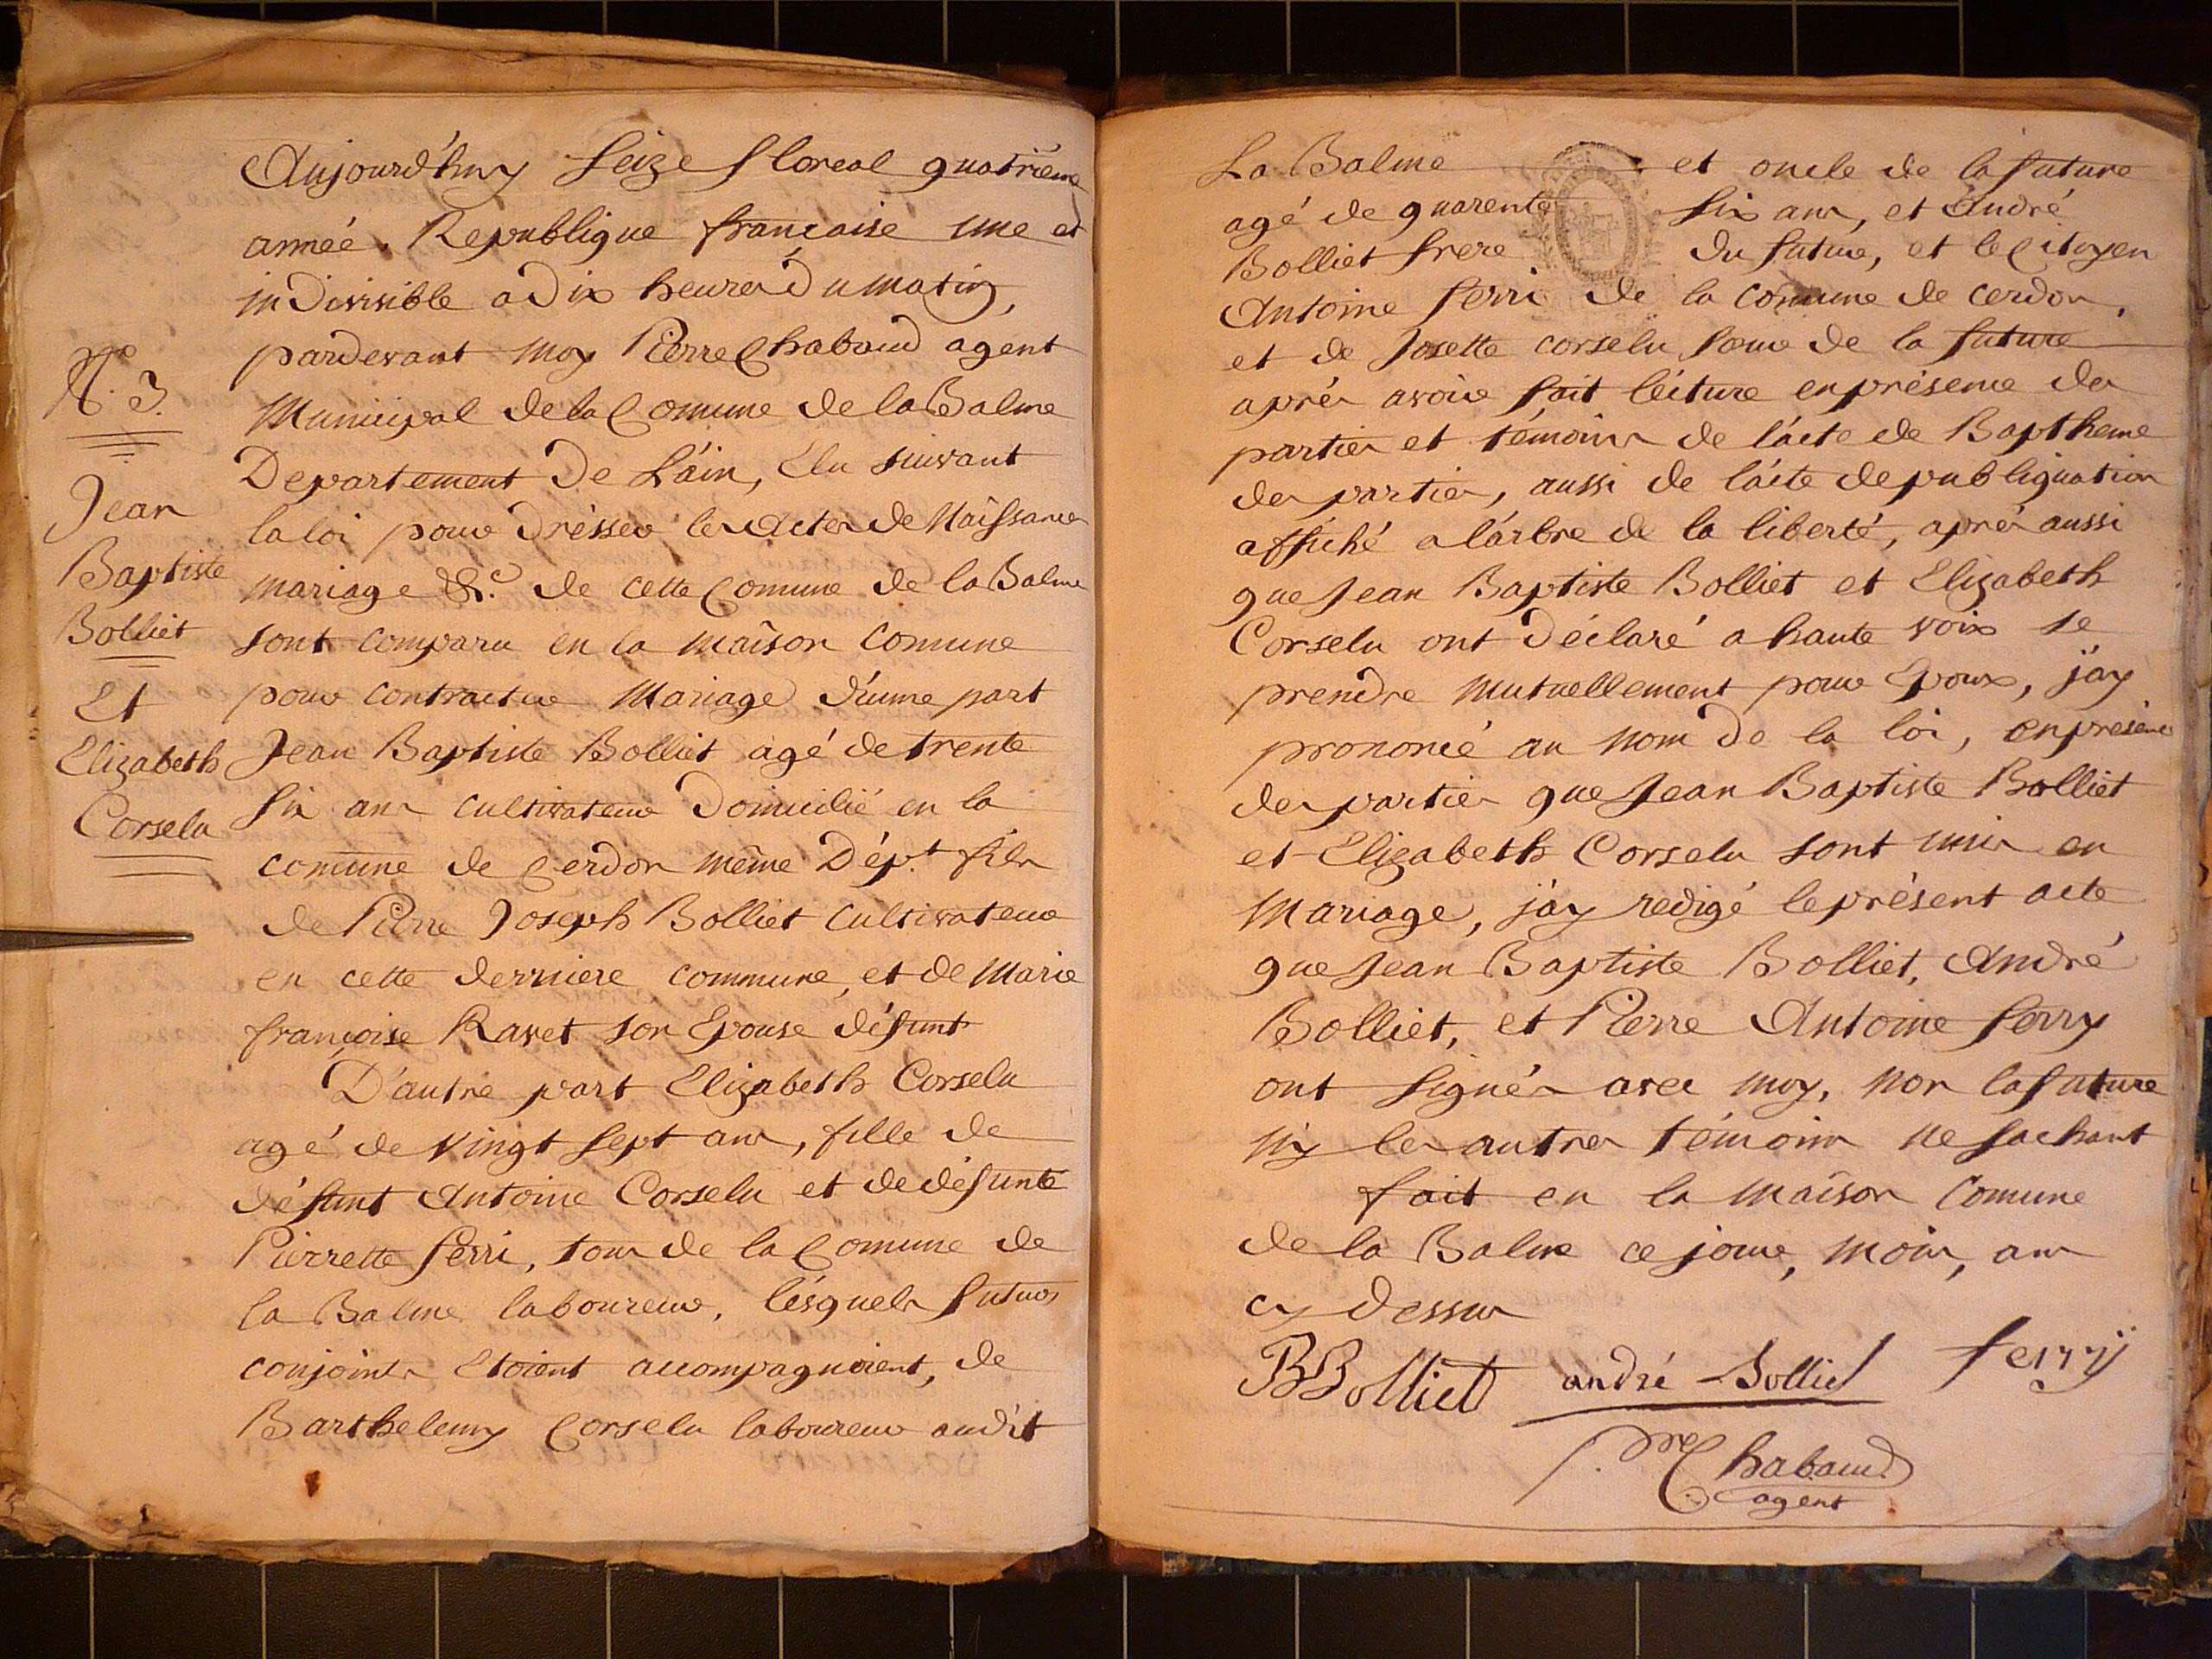 Aujourd'huy seize floreal quatrième
année. Republique française une et
indivisible a dix heures du matin,
pardevant moy Pierre Chabaud agent
Municipal de la Comune de la Balme
Departement de L'ain, Elu suivant
la loi pour drésser les Actes de Naissances
mariage &c. de cette Comune de la Balme
sont comparu en la maison comune
pour contracter Mariage d'une part
Jean Baptiste Bolliet agé de trente
six ans cultivateur domicilié en la
comune de Cerdon même Dépt. fils
de Pierre Joseph Bolliet cultivateur
en cette derniere commune, et de Marie
françoise Ravet son Epouse défunt
D'autre part Elizabeth Corselu
agé de vingt sept ans, fille de
défunt Antoine Corselu et de défunte
Pierrette ferri, tous de la Comune de
la Balme laboureur, lésquels futurs
conjoints Etoient accompagnoient, de
Barthelemy Corselu laboureur audit
N.o 3.
Jean
Baptiste
Bolliet
Et
Elizabeth
Corselu
La Balme et oncle de la future
agé de quarente six ans, et André
Bolliet frere du futur, et le Citoyen
Antoine ferri de la comune de cerdon,
et de Josette corselu soeur de la future
aprés avoir fait lécture en présence des
parties et témoins de l'acte de Baptheme
des parties, aussi de l'acte de publiquation
affiché a l'arbre de la liberté, aprés aussi
que Jean Baptiste Bolliet et Elizabeth
Corselu ont déclaré a haute voix se
prendre mutuellement pour Epoux, j'ay
prononcé au nom de la loi, en présence
des parties que Jean Baptiste Bolliet
et Elizabeth Corselu sont unis en
Mariage, j'ay redigé le présent acte
que Jean Baptiste Bolliet, André
Bolliet, et Pierre Antoine ferry
ont signés avec moy, non la future
ny les autres témoins ne sachant
fait en la maison Comune
de la Balme ce jour, mois, ans
cy dessus
BBolliet andré Bolliet ferrÿ
pre Chabaud
agent